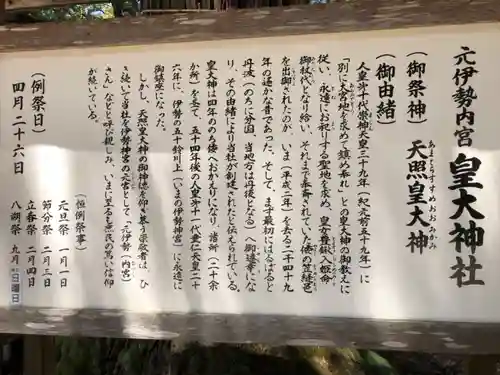 元伊勢内宮 皇大神社
(御祭神) 天照皇大神
あまてらすすめおおみかみ
(御由緒)
人皇第十代崇神天皇三十九年(紀元前五十九年)に
「別に大宮地を求めて鎮め奉れ」との皇大神の御教えに
従い、永遠にお祀りする聖地を求め、皇女豊鍬入姫命
御杖代となり給い、それまで奉斎されていた倭の笠縫邑
を出御されたのが、いま(平成二年)を去る二千四十九
年の遠い昔であった。そして、まず最初にはるばると
丹波(のちに分国、当地方は丹後となる)へ御遷幸にな
り、その由緒により当社が創建されたと伝えられている。
皇大神は四年ののち倭へおかえりになり、諸所(二十余
か所)を経て、五十四年後の人皇第十一代垂仁天皇二十
六年に、伊勢の五十鈴川上(いまの伊勢神宮)に永遠に
御鎮座になった。
しかし、天照皇大神の御神徳を仰ぎ慕う崇敬者は、ひ
き続いて当社を伊勢神宮の元宮として「元伊勢(内宮)
さん」などと呼び親しみ、いまに至るも庶民の篤い信仰
が続いている。
(例祭日)
四月二十六日
(恒例祭事)
元旦祭 一月一日
節分祭 二月三日
立春祭 二月四日
八朔祭 九月 日曜日